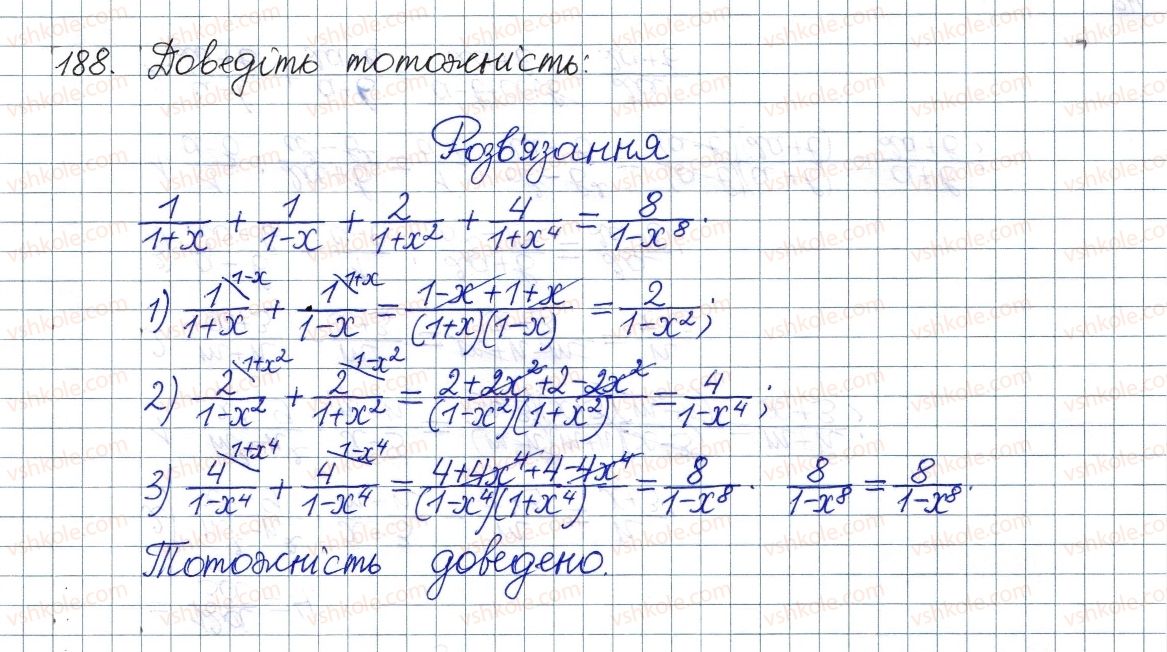 188. Доведіть тотожність:
Розв'язання
1/(1+x) + 1/(1-x) + 2/(1+x²) + 4/(1+x⁴) = 8/(1-x⁸).
1) 1/(1+x) ^(1-x) + 1/(1-x) ^(1+x) = (1-x+1+x)/((1+x)(1-x)) = 2/(1-x²);
2) 2/(1-x²) ^(1+x²) + 2/(1+x²) ^(1-x²) = (2+2x²+2-2x²)/((1-x²)(1+x²)) = 4/(1-x⁴);
3) 4/(1-x⁴) ^(1+x⁴) + 4/(1-x⁴) ^(1-x⁴) = (4+4x⁴+4-4x⁴)/((1-x⁴)(1+x⁴)) = 8/(1-x⁸). 8/(1-x⁸) = 8/(1-x⁸).
Тотожність доведено.
vshkole.com